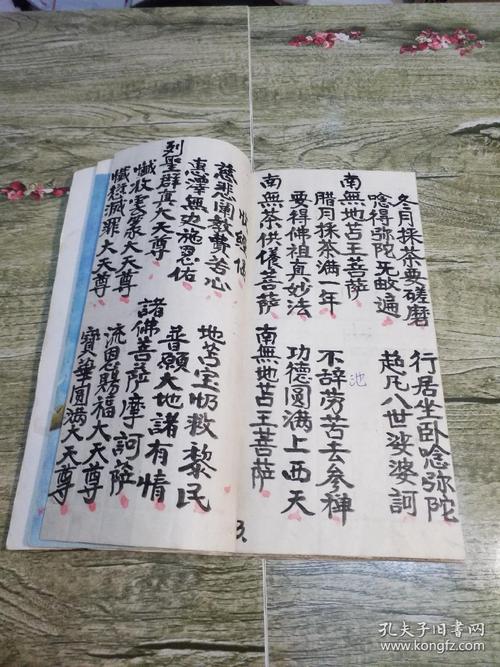 冬月採茶要磋磨 行居坐卧唸弥陀
唸得弥陀无敵遍 凡八世婆婆訶
南無地苫王菩萨
池
腊月採茶满一年 不辞劳苦去参禅
要得佛祖真妙法 功德圆满上西天
南無茶供儀菩萨 南無地苫王菩萨
偈
慈悲闻教費苦心 地苫宝叻救黎民
惠澤無边施恩佑 普願大地諸有情
列聖群真大天尊 諸佛菩萨摩訶萨
懺大天尊 流恩賜福大天尊
懺愆滅罪大天尊 寶華圆满大天尊
3.
孔夫子旧书网
www.kongfz.com